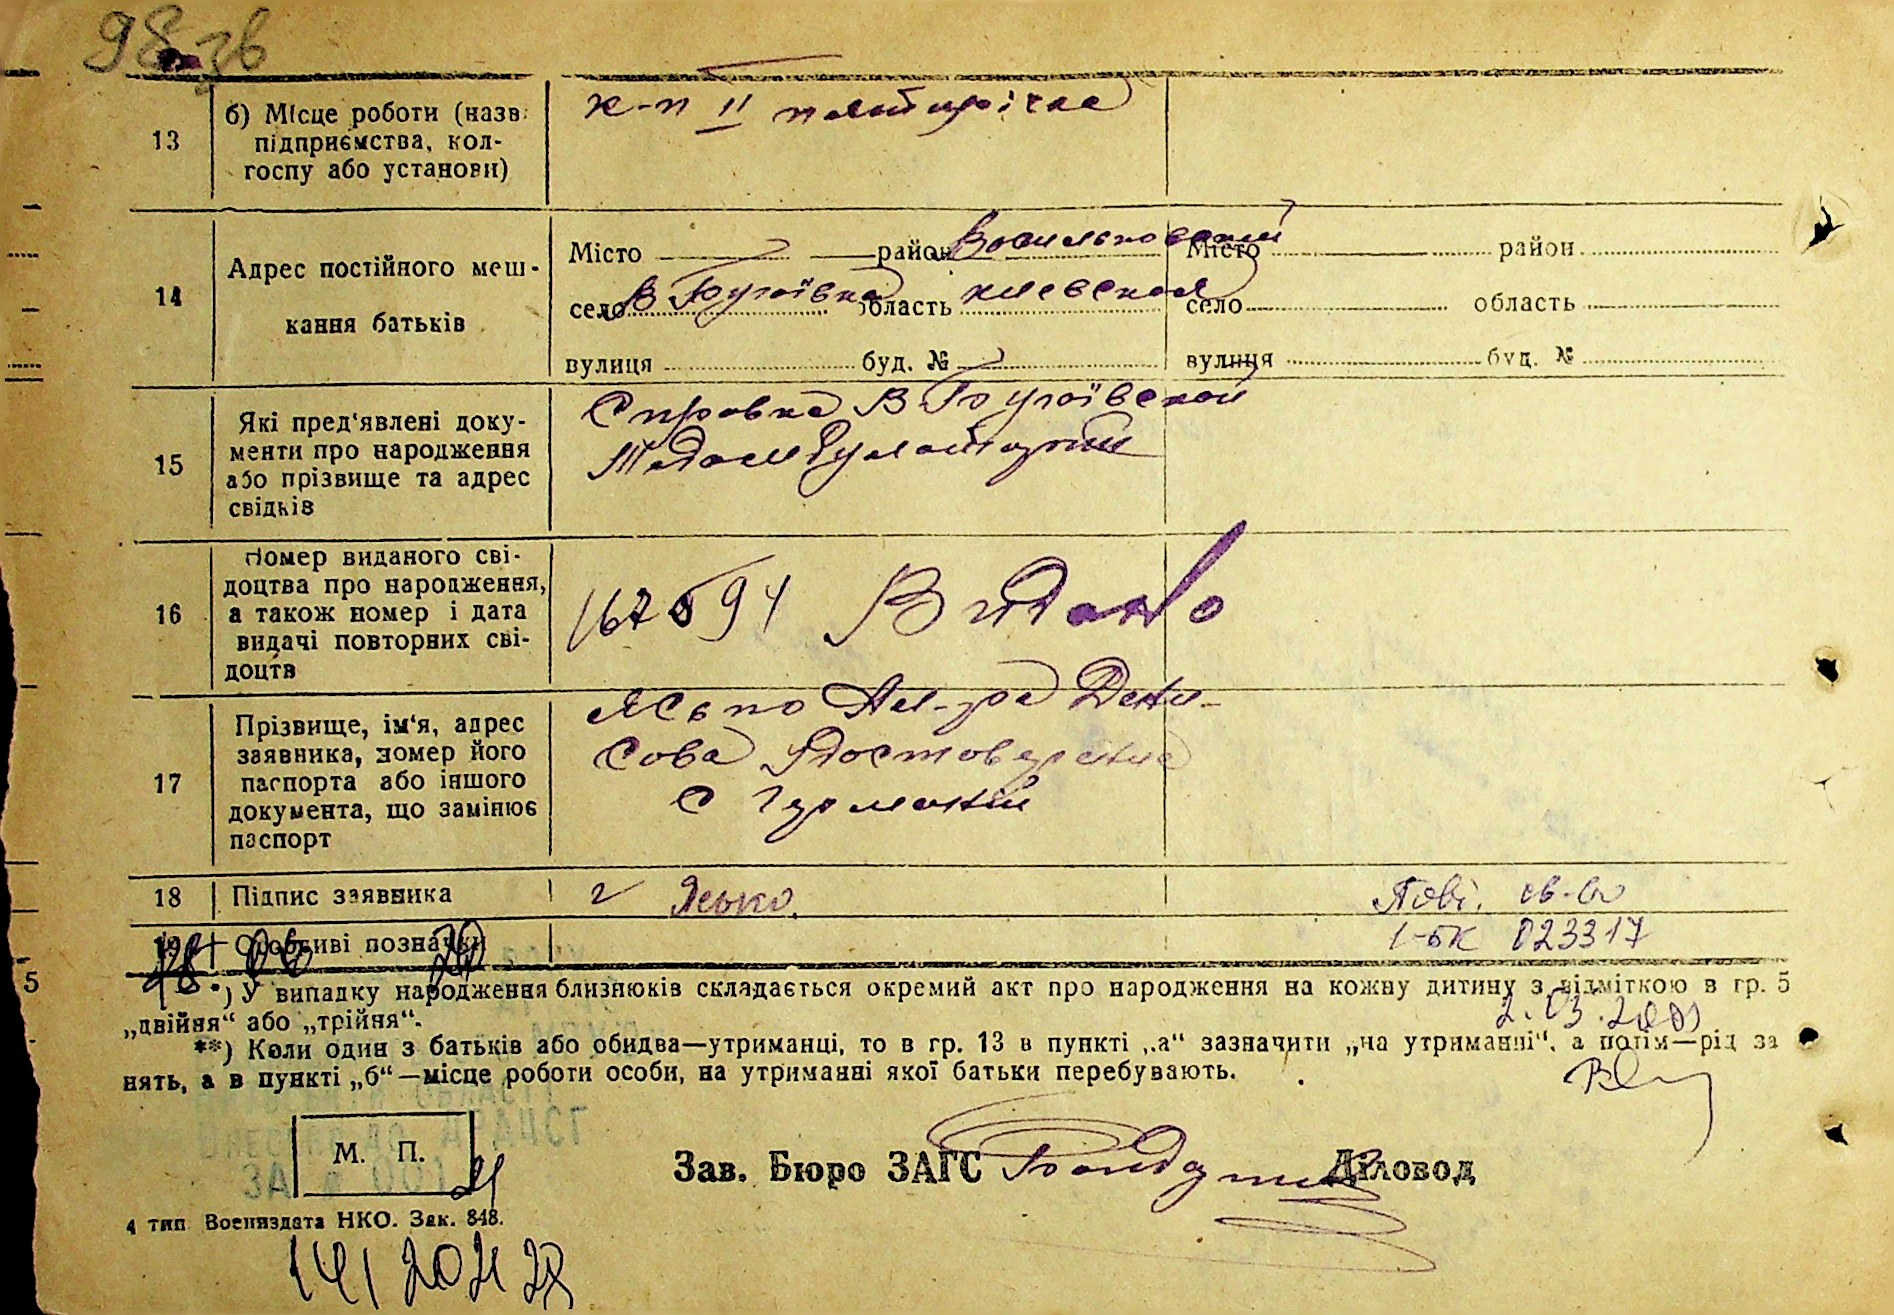 98 зв
13 б) Місце роботи (назв. підприємства, колгоспу або установи) к-п II пятирічка
14 Адрес постійного мешкання батьків
Місто район Васильковский Місто район
село В Бугаївка область киевская село область
вулиця буд. № вулиця буд. №
15 Які пред‘явлені документи про народження або прізвище та адрес свідків
Справка В-Бугаївской
16 Номер виданого свідоцтва про народження, а також номер і дата видачі повторних свідоцтв
Видано
17 Прізвище, ім‘я, адрес заявника, номер його паспорта або іншого документа, що замінює паспорт
Ясько Ал-ра Дени-
сова
с Германии
18 Підпис заявника Ясько. Повт. св-во
19 Особливі позначки І-БК 023317
5
*) У випадку народження близнюків складається окремий акт про народження на кожну дитину з відміткою в гр. 5
„двійня“ або „трійня“.
**) Коли один з батьків або обидва—утриманці, то в гр. 13 в пункті „а“ зазначити „на утриманні“, а потім—рід за
нять, а в пункті „б“—місце роботи особи, на утриманні якої батьки перебувають.
М. П.
Зав. Бюро ЗАГС Діловод
4 тип Воениздата НКО. Зак. 848.